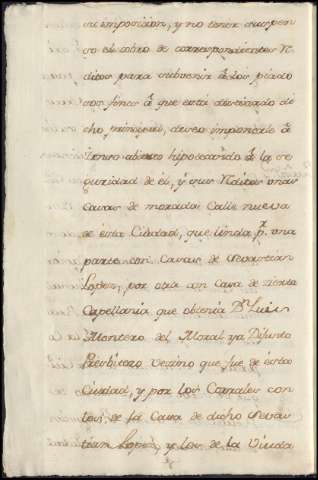 su imposicion, y no tener suspen
so el cobro de correspondientes R
ditos para subvenir à los piado
sos fines à que está destinado di
cho principal, deseo imponerlo à
Zenso abierto hipotecando à la se
guridad de èl, y sus Reditos unas
Casas de morada Calle nueva
de èsta Ciudad, que linda pr. una
parte con Casas de Sevastian
Lopez, por otra con Casa de cierta
Capellania que obtenia Dn. Luis
Montero del Moral ya Difunto
Presbitero vezino que fue de èsta
Ciudad, y por los Corrales con
los de la Casa de dicho Sevas
tian Lopez, y los de la Viuda